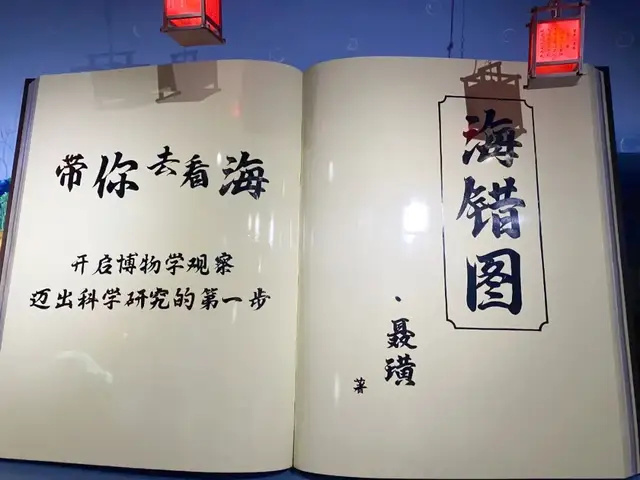 带你去看海
开启博物学观察
迈出科学研究的第一步
海错图
·聂璜
著